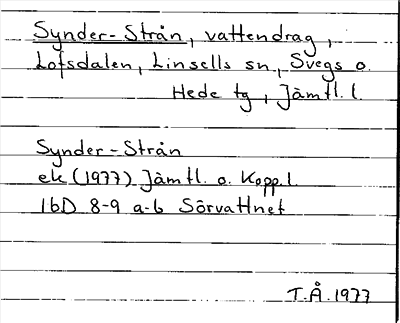 Synder-Strån, vattendrag,
Lofsdalen, Linsells sn, Svegs o.
Hede tg, Jämtl. l.
Synder-Strån
ek (1977) Jämtl. o. Kopp. l.
16D 8-9 a-b Sörvattnet
T.Å. 1977